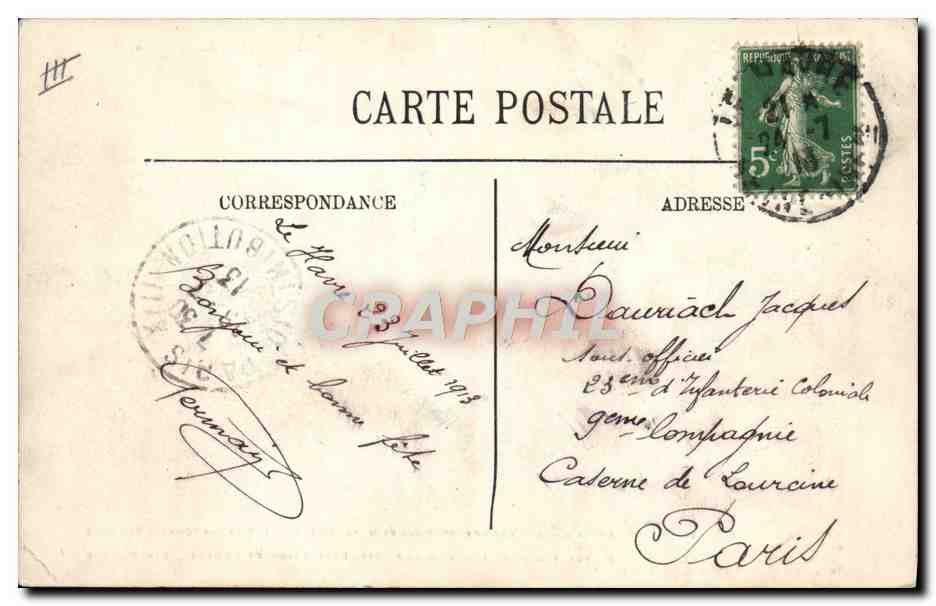 CARTE POSTALE
CORRESPONDANCE
ADRESSE
REPUBLIQUE
5c
POSTES
Le Havre 23 Juillet 1913
Bonjour et bonne fête
Germain
DISTRIBUTION
PARIS
7 30
13
Monsieur
Dauriach Jacques
sous officier
23eme d'Infanterie Coloniale
9eme Compagnie
Caserne de Lourcine
Paris
CRAPHIL